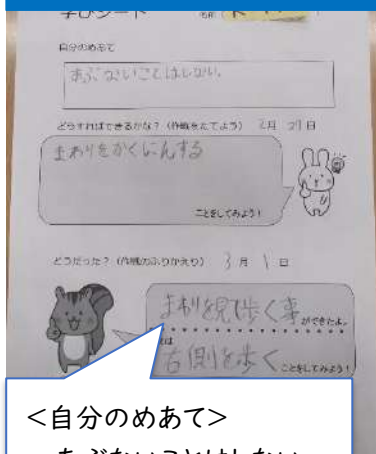 学びシート 名前(
自分のめあて
あぶないことはしない。
どうすればできるかな?(作戦をたてよう) 2月 27日
まわりをかくにんする
ことをしてみよう!
どうだった?(作戦のふりかえり) 3月 1日
まわりを見て歩く事ができたよ。
は
右側を歩くことをしてみよう!
<自分のめあて>
あぶないことはしない